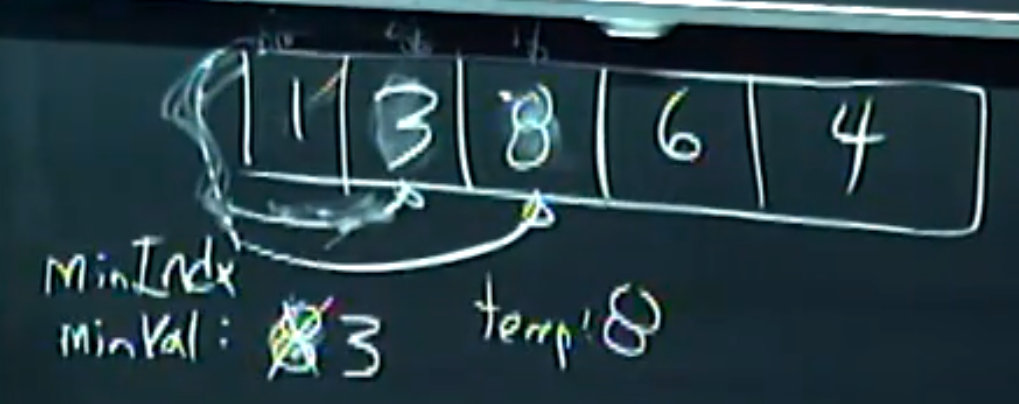 1 3 8 6 4
MinIndx
MinVal: 3 temp: 8